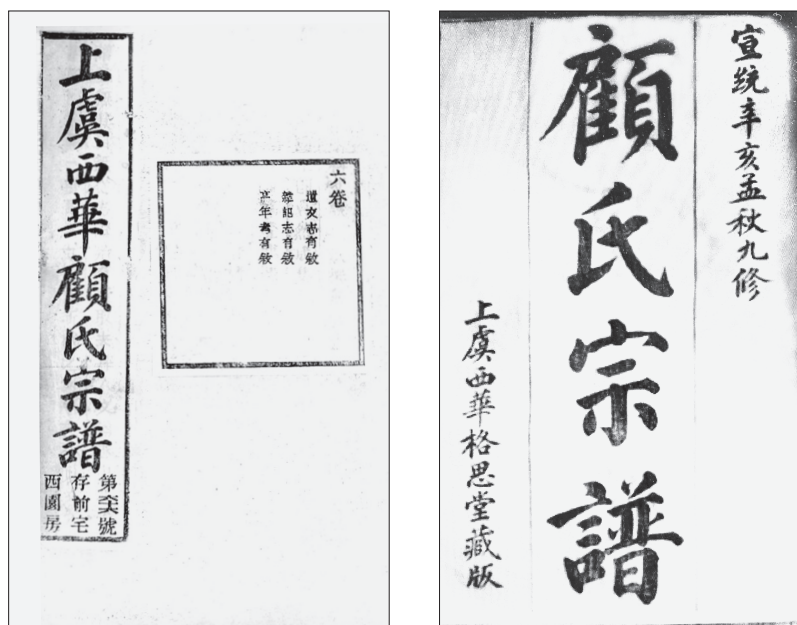 上虞西華顧氏宗譜
第號
存前宅
西園房
六卷
遺文志有敘
志有敘
年考有敘
宣統辛亥孟秋九修
顧氏宗譜
上虞西華格思堂藏版